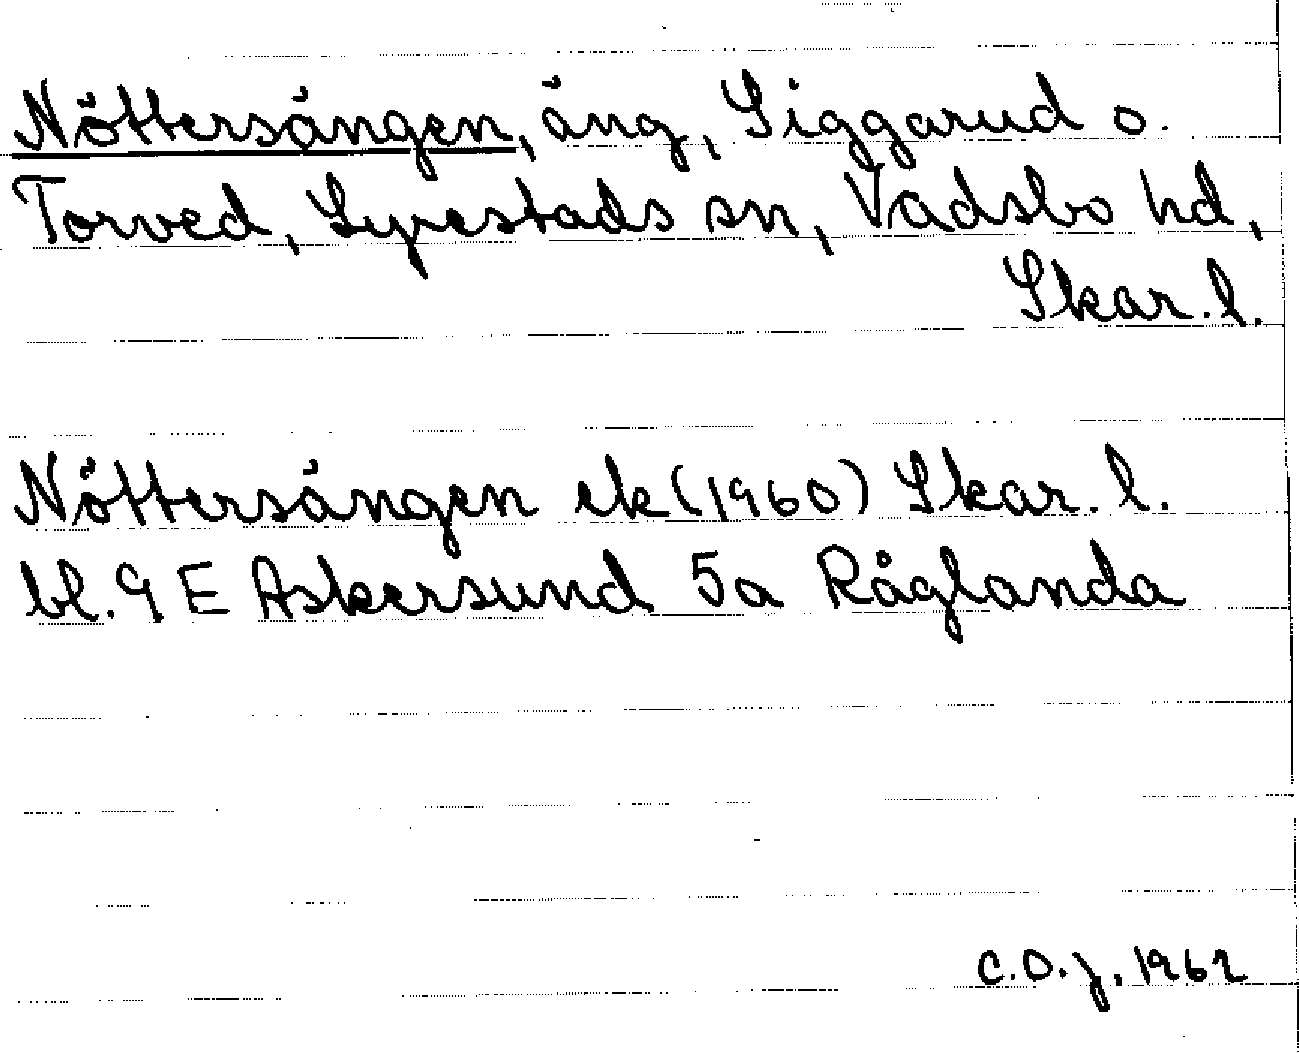 Nöttersängen, äng, Siggarud o.
Torved, Lyrestads sn, Vadsbo hd,
Skar. l.
Nöttersängen ek (1960) Skar. l.
bl. 9 E Askersund 5a Råglanda
C.O.J. 1962